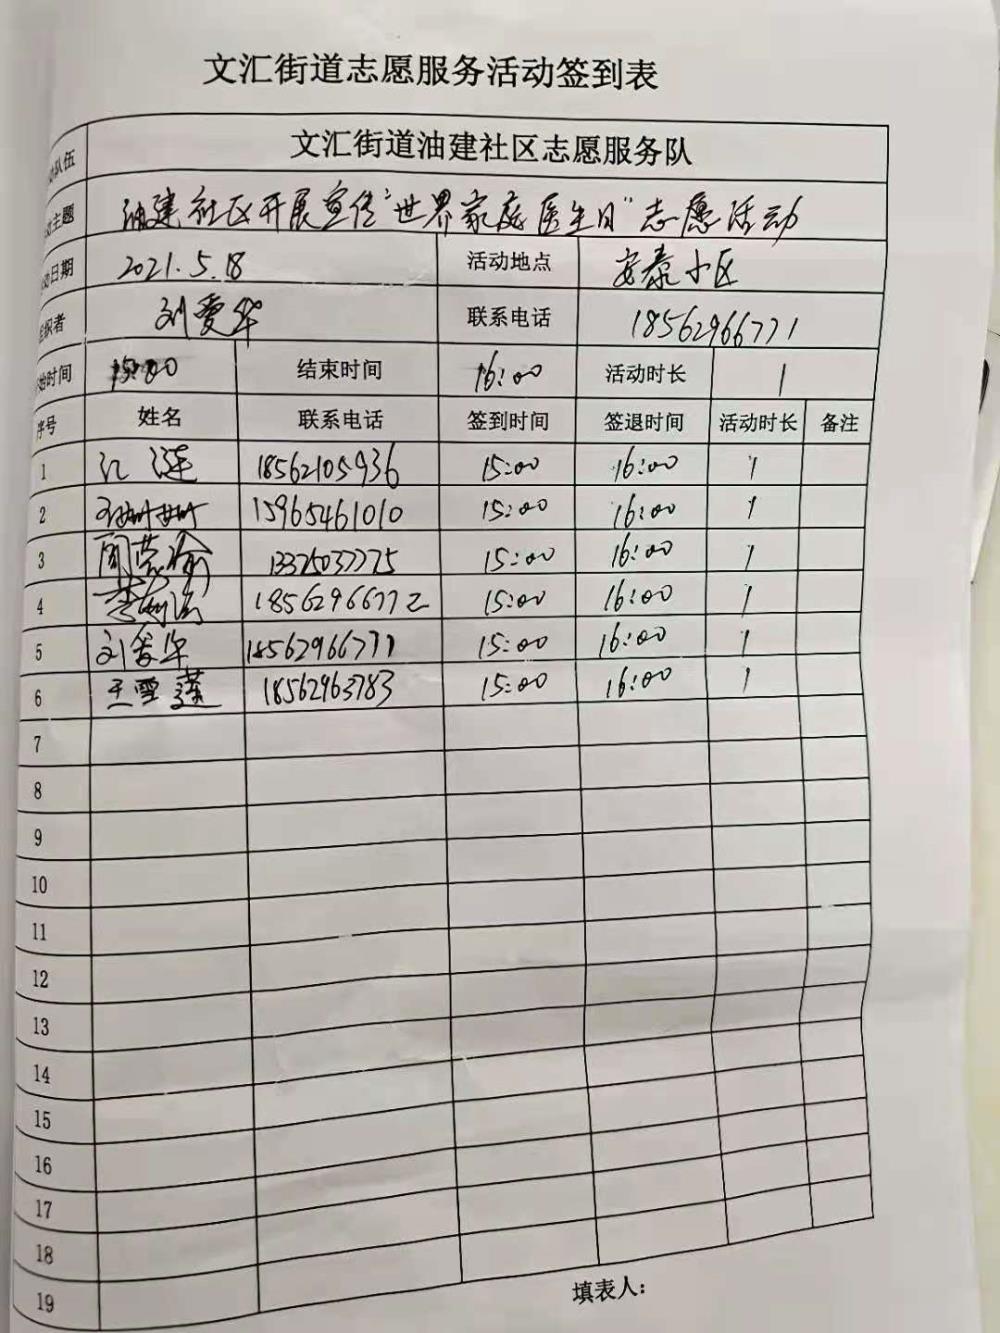 文汇街道志愿服务活动签到表
队伍 文汇街道油建社区志愿服务队
主题 油建社区开展宣传"世界家庭医生日"志愿活动
日期 2021.5.18 活动地点 安泰小区
组织者 刘爱华 联系电话 18562966771
始时间 15:00 结束时间 16:00 活动时长 1
序号 姓名 联系电话 签到时间 签退时间 活动时长 备注
1 江莲 18562105936 15:00 16:00 1
2 15965461010 15:00 16:00 1
3 13325037775 15:00 16:00 1
4 18562966772 15:00 16:00 1
5 刘爱华 18562966771 15:00 16:00 1
6 王雪莲 18562963783 15:00 16:00 1
7
8
9
10
11
12
13
14
15
16
17
18
19
填表人: